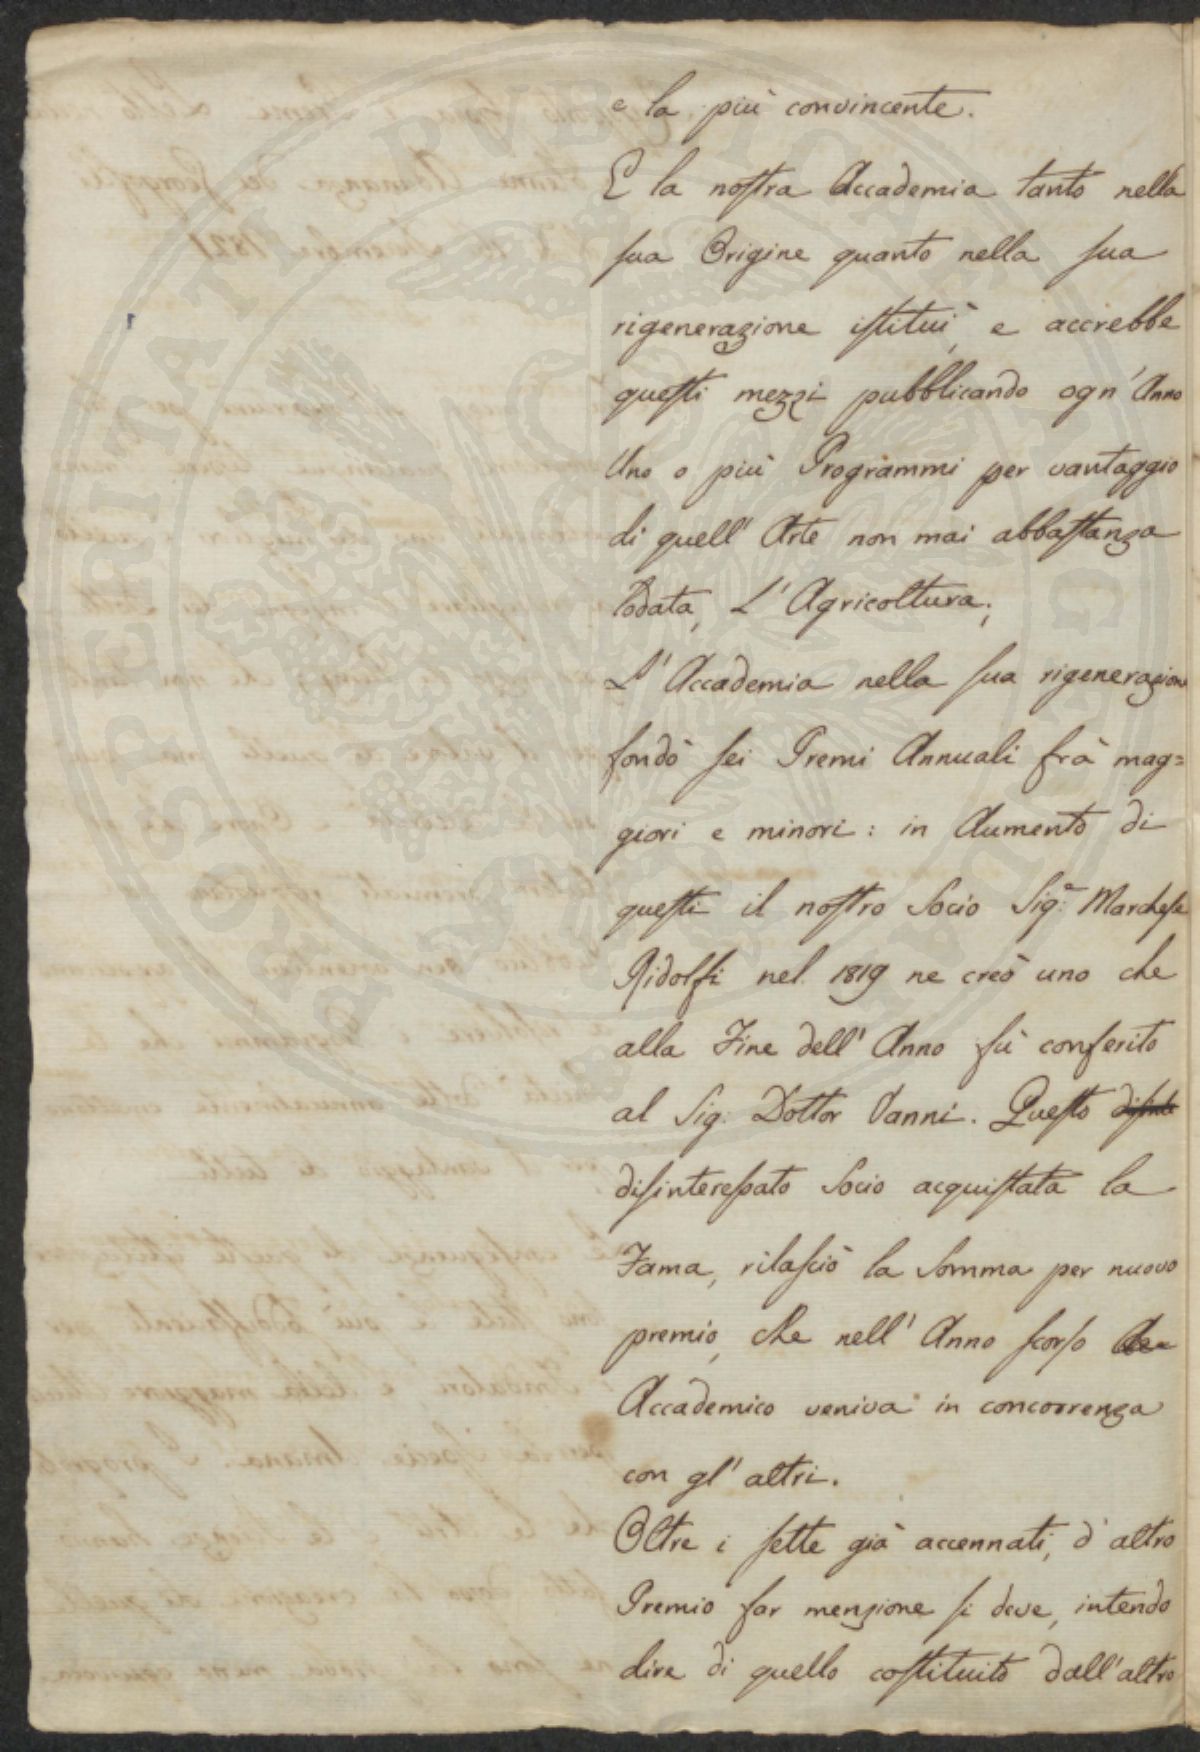 e la più convincente.
E la nostra Accademia tanto nella
sua Origine quanto nella sua
rigenerazione istituì, e accrebbe
questi mezzi pubblicando ogn' Anno
Uno o più Programmi per vantaggio
di quell' Arte non mai abbastanza
lodata, L' Agricoltura;
L' Accademia nella sua rigenerazione
fondò sei Premi Annuali frà mag=
giori e minori: in Aumento di
questi il nostro Socio Sig.e Marchese
Ridolfi nel 1819 ne creò uno che
alla Fine dell' Anno fù conferito
al Sig: Dottor Vanni. Questo
disinteressato Socio acquistata la
Fama, rilasciò la Somma per nuovo
premio, che nell' Anno scorso
Accademico veniva in concorrenza
con gl' altri.
Oltre i sette già accennati, d' altro
Premio far menzione si deve, intendo
dire di quello costituito dall' altro
PROSPERITATI PUBLICAE AUGENDAE